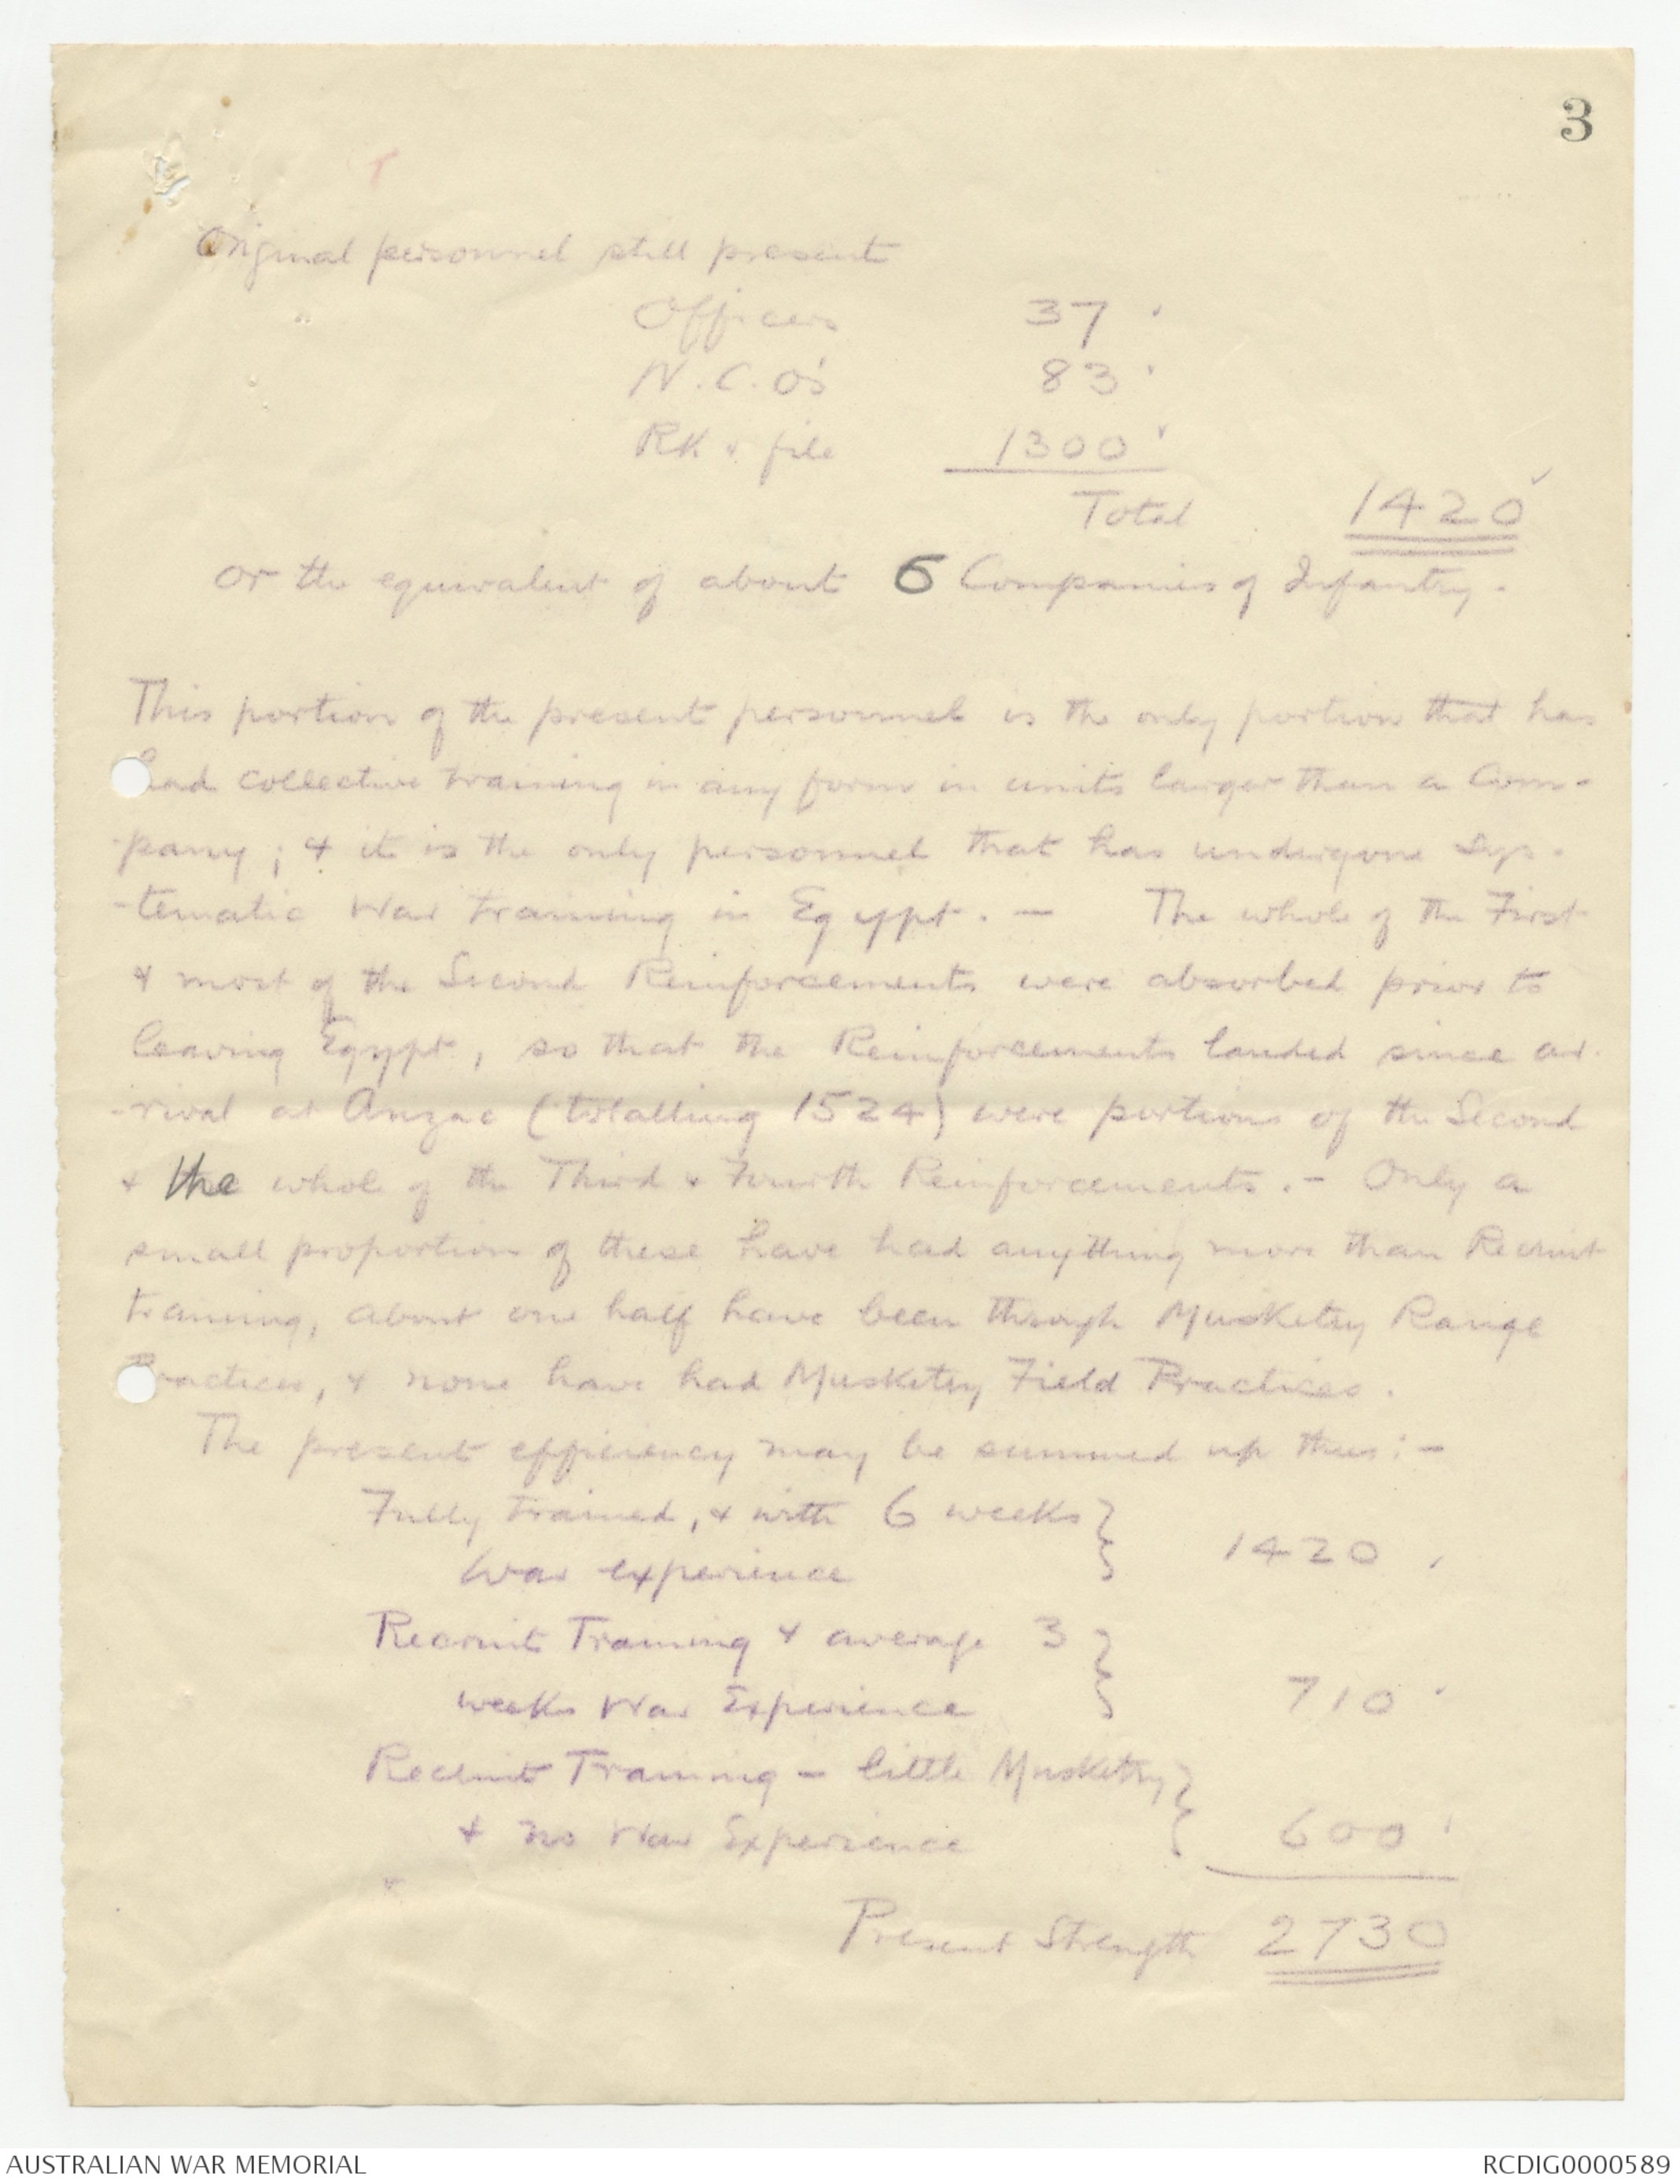 3
Original personnel still present
Officers 37
N.C.O's 83
RK & file 1300
Total 1420
or the equivalent of about 6 Companies of Infantry.
This portion of the present personnel is the only portion that has
had collective training in any form in units larger than a Com-
-pany; & it is the only personnel that has undergone sys-
-tematic War training in Egypt. — The whole of the First
& most of the Second Reinforcements were absorbed prior to
leaving Egypt, so that the Reinforcements landed since ar-
-rival at Anzac (totalling 1524) were portions of the Second
& the whole of the Third & Fourth Reinforcements. - Only a
small proportion of these have had anything more than Recruit
training, about one half have been through Musketry Range
Practices, & none have had Musketry Field Practices.
The present efficiency may be summed up thus:-
Fully trained, & with 6 weeks
War experience } 1420
Recruit Training & average 3
weeks War Experience } 710
Recruit Training - little Musketry
& no War Experience } 600
Present Strength 2730
AUSTRALIAN WAR MEMORIAL
RCDIG0000589